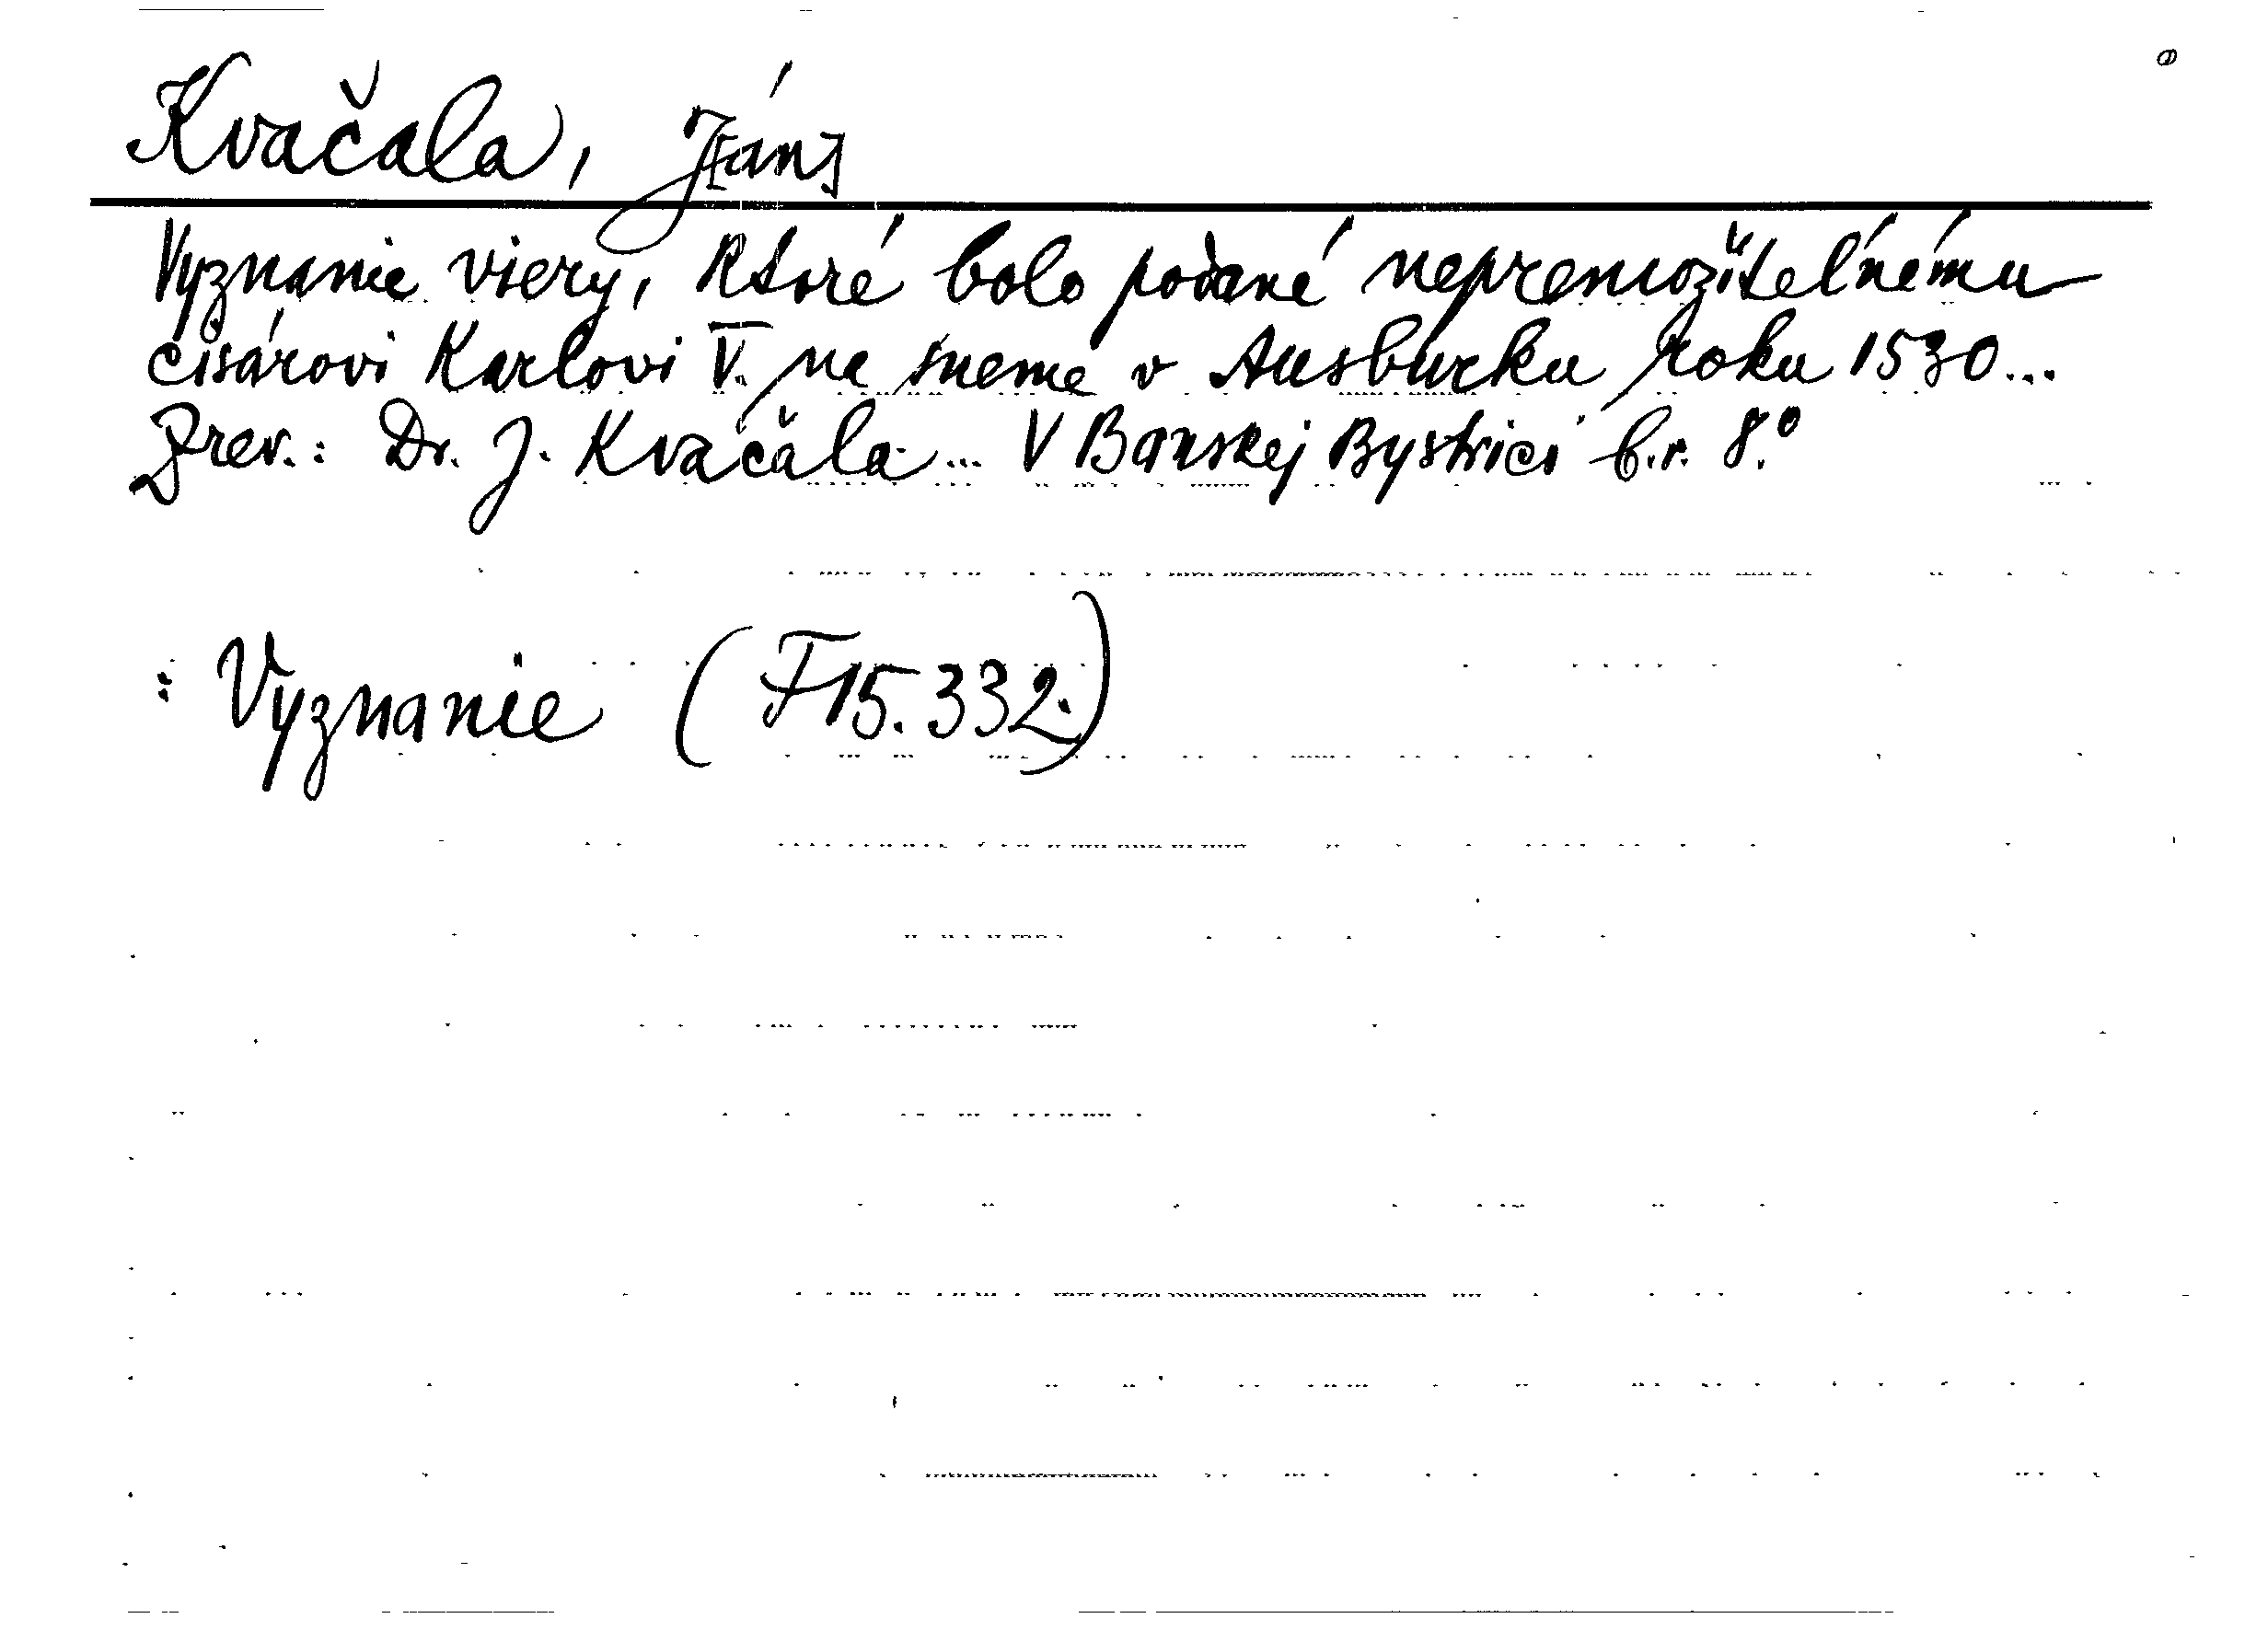 Kvačala, J[án]
Vyznanie viery, ktoré bolo podané nepremožiteľnému
cisárovi Karlovi V. na sneme v Ausburku roku 1530...
Prev.: Dr. J. Kvačala... V Banskej Bystrici b.r. 8.°
: Vyznanie (F15.332.)